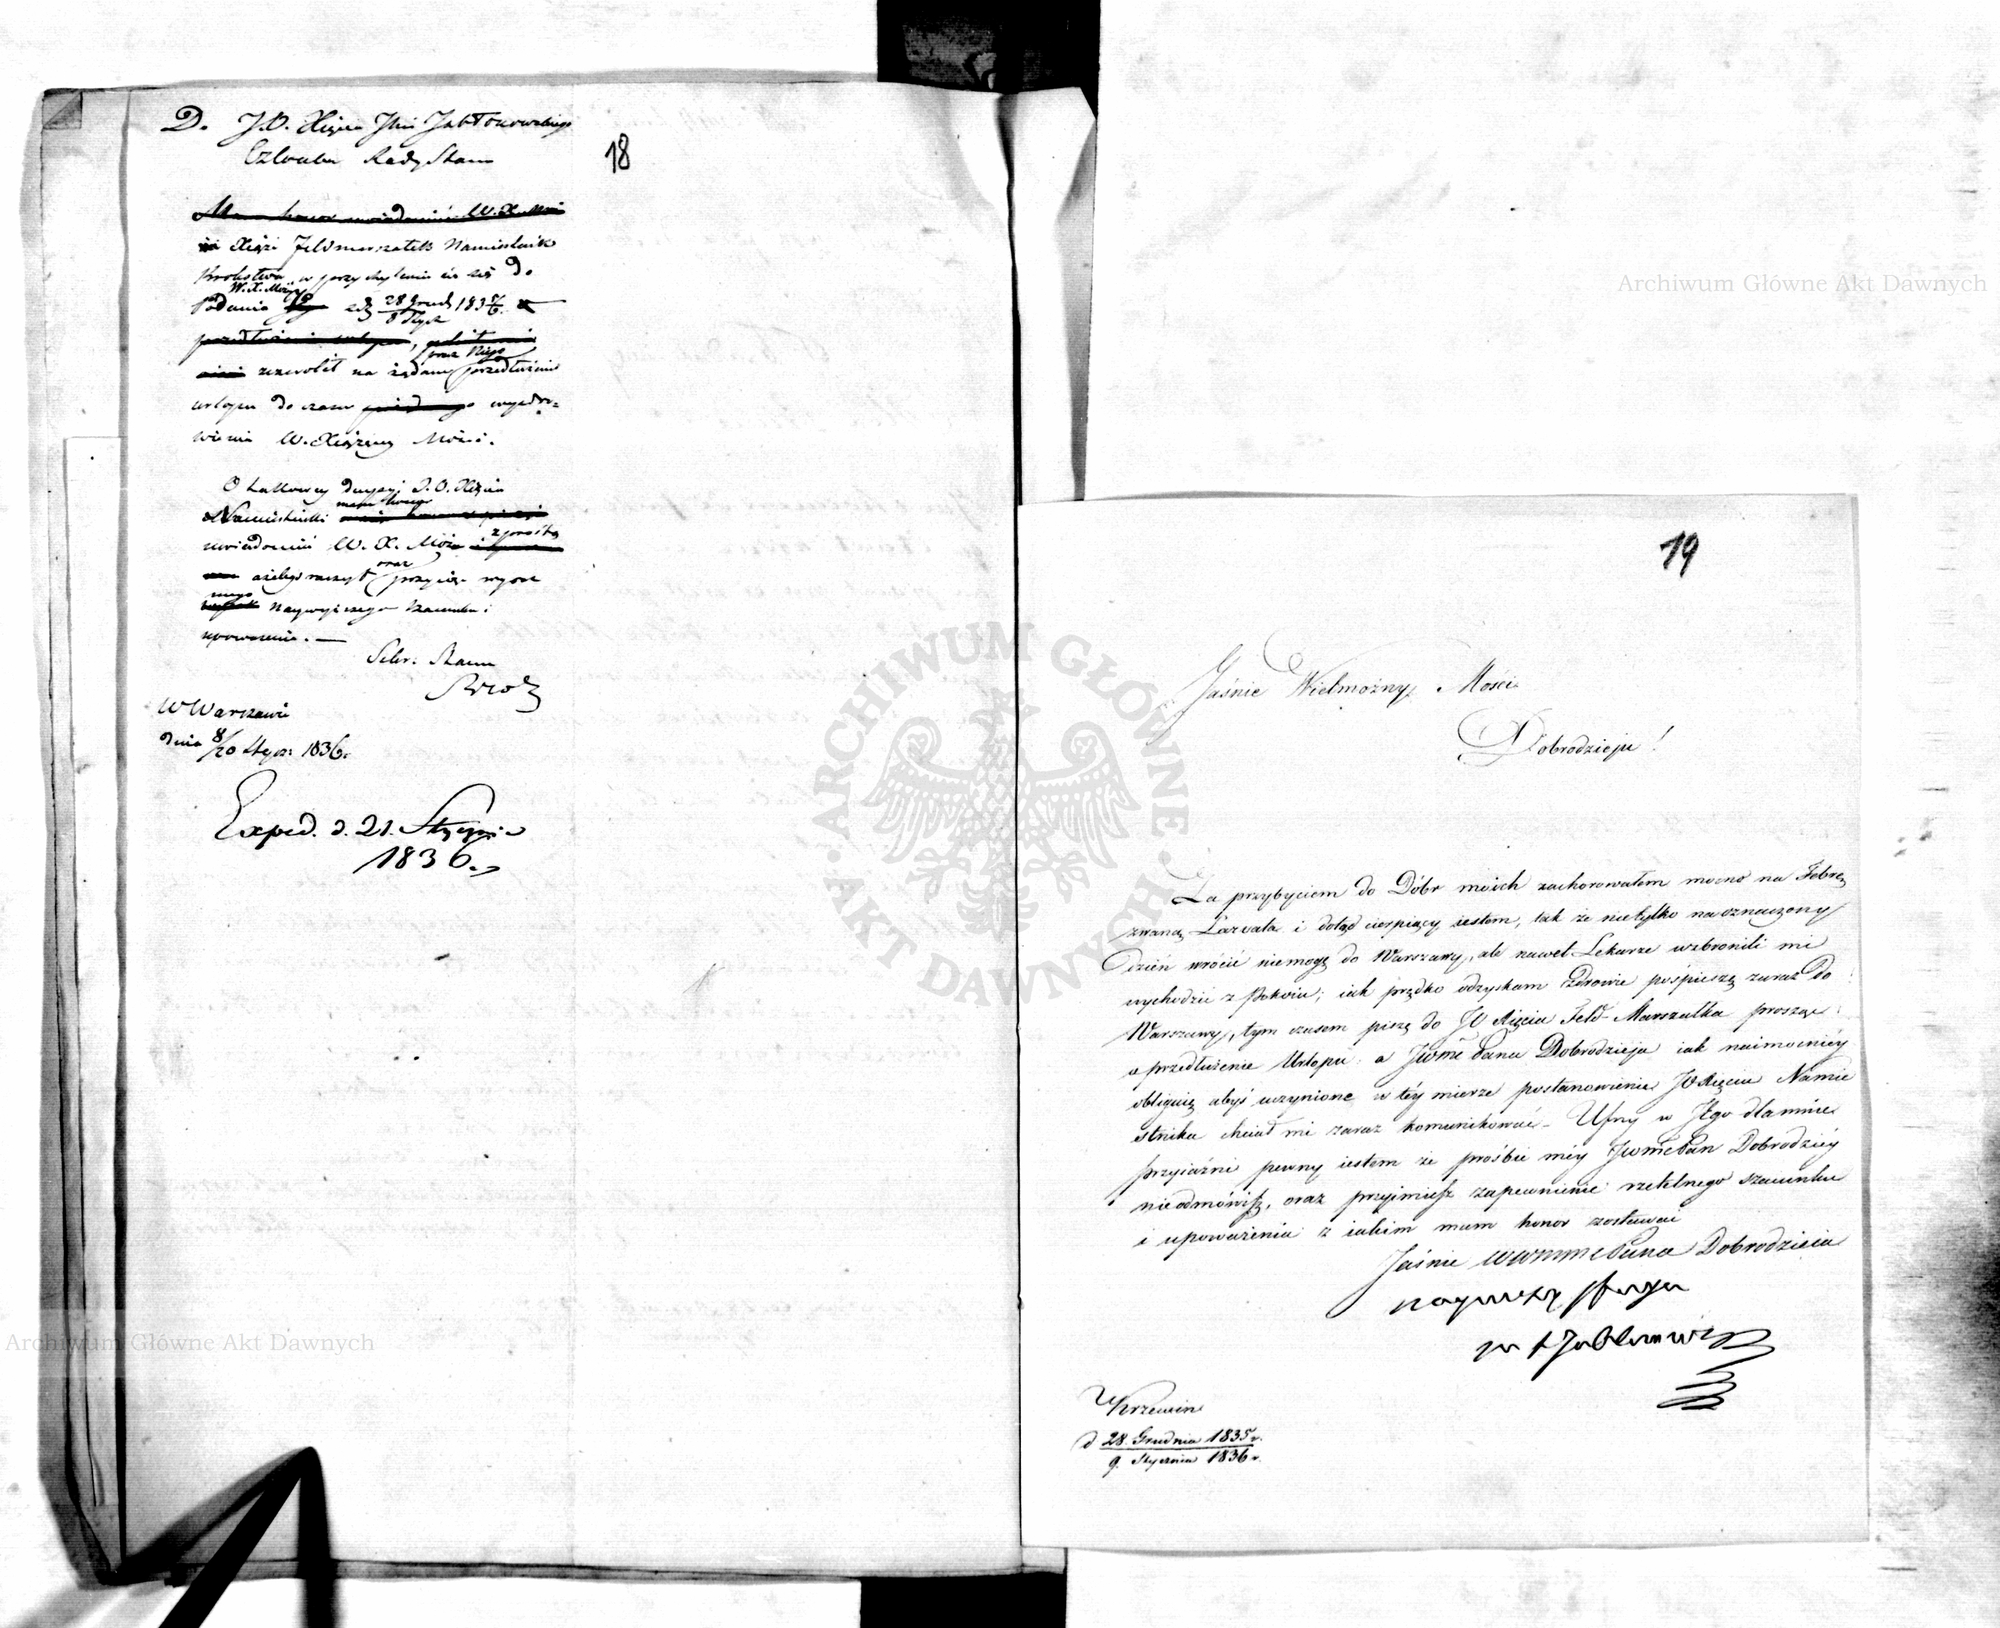 D. J.O. Xięcia Jmći Jabłonowskiego
Członka Rady Stanu
18
Mam honor uwiadomić W.X. Mość
iż Xiąże Feldmarszałek Namiestnik
Królestwa, w przychyleniu się do
W.X. Mości
podania z d. 28 Grud. 1835/6
9 Stycz.
przedłużenie urlopu,
przez Niego
zezwolił na żądane przedłużenie
urlopu do czasu wyzdro=
wienia W. Xiążęcej Mości.
O takowey decyzyi J.O. Xięcia
mam honor
Namiestnika
z prośbą
uwiadomić W. X. Mość
oraz
ażebyś raczył przyjąć wyraz
mego
najwyższego szacunku i
upoważenia. —
Sekr: Stanu
W Warszawie
dnia 8/20 Stycz: 1836 r.
Exped. d. 21. Stycznia
1836. r.
19
Jaśnie Wielmożny Mości
Dobrodzieju!
Za przybyciem do Dóbr moich zachorowałem mocno na Febrę
zwaną Larvata i dotąd cierpiący iestem, tak że nietylko na oznaczony
dzień wrócić niemogę do Warszawy, ale nawet Lekarze wzbronili mi
wychodzić z Pokoiu; iak prędko odzyskam Zdrowie pośpieszę zaraz do
Warszawy, tym czasem piszę do JO Xięcia Feld-Marszałka prosząc
o przedłużenie Urlopu. a JWme Pana Dobrodzieja iak naimocniéy
obliguię abyś uczynione w téy mierze postanowienie JO Xięcia Namie
stnika chciał mi zaraz komunikować - Ufny w Jego dla mnie
przyiaźni pewny iestem że prośbie méy JWmePan Dobrodziéy
nieodmówisz, oraz przyjmiesz zapewnienie rzetelnego szacunku
i upoważenia z iakim mam honor zostawać
Jaśnie WWmmePana Dobrodzieia
naywyższy sługa
Jabłonowski
Krzewin
d 28. Grudnia 1835 r.
9. Stycznia 1836 r.
Archiwum Główne Akt Dawnych
Archiwum Główne Akt Dawnych
ARCHIWUM GŁÓWNE
AKT DAWNYCH